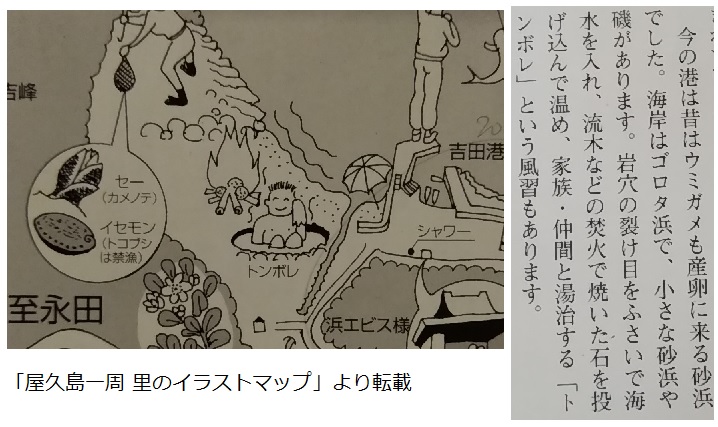 吉峰
20
吉田港
セー
(カメノテ)
イセモン
(トコブシ
は禁漁)
シャワー
トンボレ
至永田
浜エビス様
「屋久島一周 里のイラストマップ」より転載
今の港は昔はウミガメも産卵に来る砂浜
でした。海岸はゴロタ浜で、小さな砂浜や
磯があります。岩穴の裂け目をふさいで海
水を入れ、流木などの焚火で焼いた石を投
げ込んで温め、家族・仲間と湯治する「ト
ンボレ」という風習もあります。